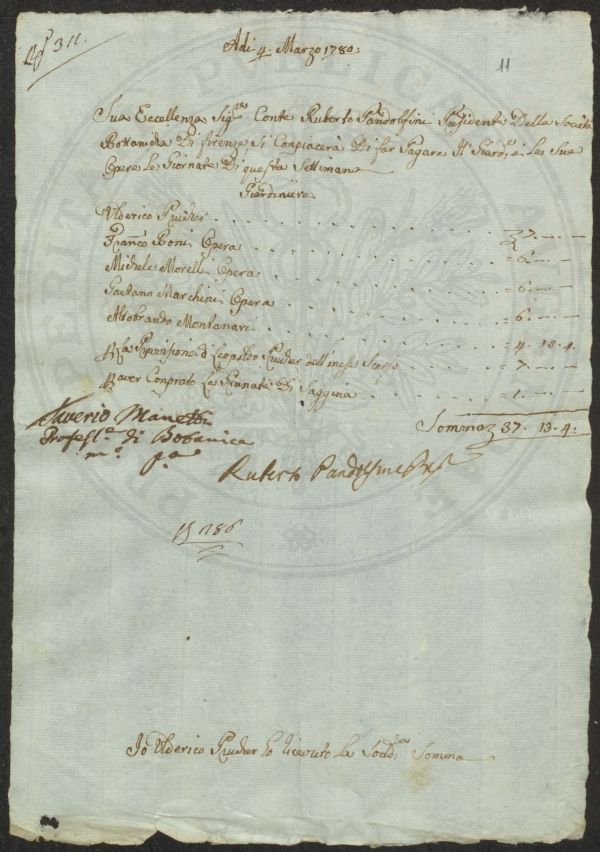 N.° 311.
11
Adi 4. Marzo 1780:
Sua Eccellenza Sig.re Conte Ruberto Pandolfini Presidente Della Società
Bottanicha Di firenze, Si Conpiacerà Di far Pagare Il Giard.e, e Le Sue
Opere Le Giornate Di questa Settimana
Giardiniere
Ulderico Prucher
Franco Boni Opera 7. — —
Michele Morelli Opera = 6. — —
Gaetano Marchini Opera = 6. — —
Aldobrando Montanari = 6. — —
P. La Provisione d Leopoldo Prucher dell mese Scorso = 4. 13. 4.
P. aver Conprato Le Granate Di Saggina = 7. — —
= 1. — —
Somma 37. 13. 4.
Saverio Manetti
Profess.e di Botanica
m.o p.a
Ruberto Pandolfini Pres.
186
Io Ulderico Prucher ho riceuto La Sodd.a Somma